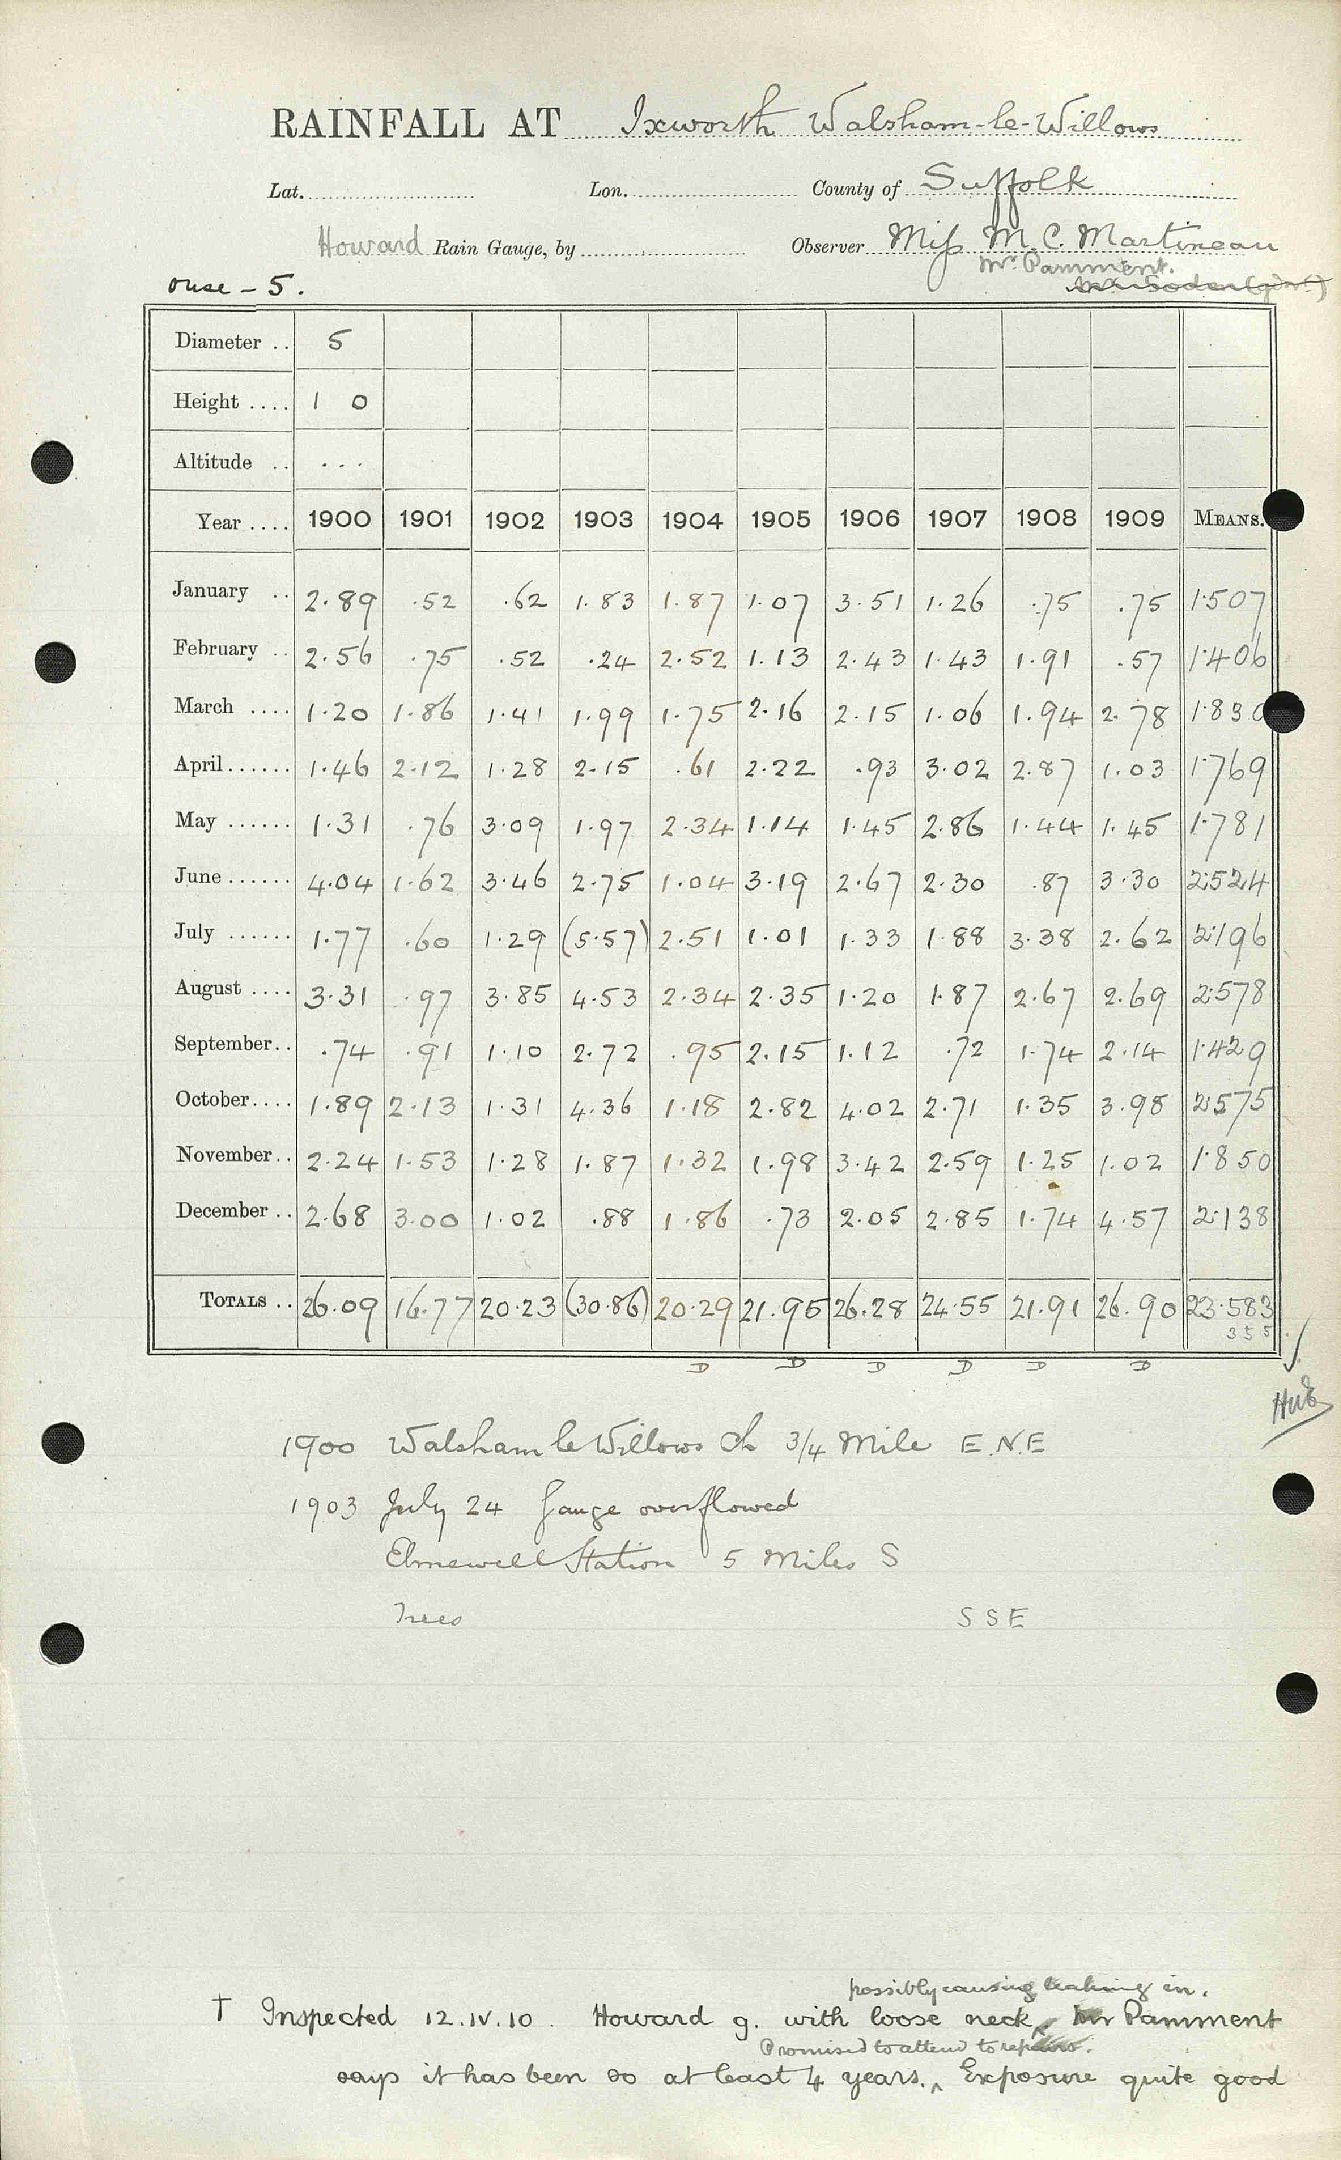 RAINFALL AT Ixworth Walsham-le-Willows
Lat. Lon. County of Suffolk
Howard Rain Gauge, by Observer Miss M. C. Martineau
Mr Pamment.
ouse - 5.
Diameter .. 5
Height .... 1 0
Altitude .. ...
Year .... 1900 1901 1902 1903 1904 1905 1906 1907 1908 1909 MEANS.
January .. 2.89 .52 .62 1.83 1.87 1.07 3.51 1.26 .75 .75 1.507
February .. 2.56 .75 .52 .24 2.52 1.13 2.43 1.43 1.91 .57 1.406
March .... 1.20 1.86 1.41 1.99 1.75 2.16 2.15 1.06 1.94 2.78 1.830
April...... 1.46 2.12 1.28 2.15 .61 2.22 .93 3.02 2.87 1.03 1.769
May ...... 1.31 .76 3.09 1.97 2.34 1.14 1.45 2.86 1.44 1.45 1.781
June...... 4.04 1.62 3.46 2.75 1.04 3.19 2.67 2.30 .87 3.30 2.524
July ...... 1.77 .60 1.29 (5.57) 2.51 1.01 1.33 1.88 3.38 2.62 2.196
August .... 3.31 .97 3.85 4.53 2.34 2.35 1.20 1.87 2.67 2.69 2.578
September.. .74 .91 1.10 2.72 .95 2.15 1.12 .72 1.74 2.14 1.429
October.... 1.89 2.13 1.31 4.36 1.18 2.82 4.02 2.71 1.35 3.98 2.575
November.. 2.24 1.53 1.28 1.87 1.32 1.98 3.42 2.59 1.25 1.02 1.850
December .. 2.68 3.00 1.02 .88 1.86 .73 2.05 2.85 1.74 4.57 2.138
TOTALS .. 26.09 16.77 20.23 (30.86) 20.29 21.95 26.28 24.55 21.91 26.90 23.583
355
D D D D D D
1900 Walsham le Willows Ch 3/4 Mile E.N.E
1903 July 24 Gauge overflowed
Elmswell Station 5 Miles S
Trees SSE
possibly causing leaking in.
† Inspected 12.IV.10. Howard g. with loose neck, Mr Pamment
Promised to attend to repairs.
says it has been so at least 4 years. Exposure quite good